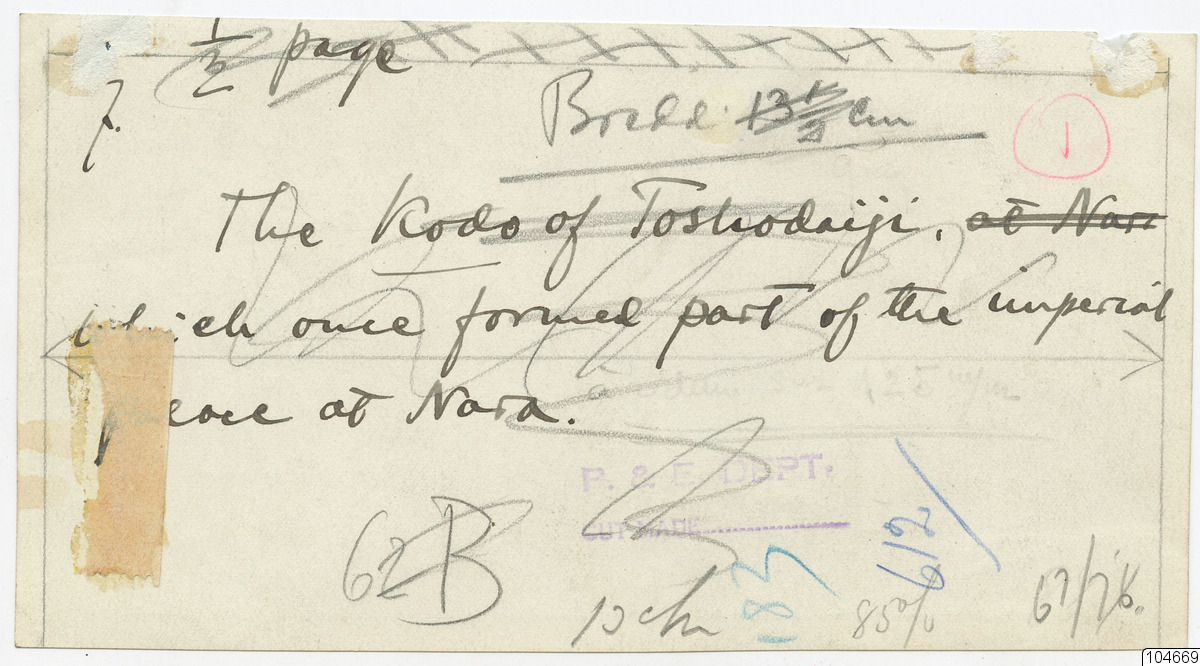 1/2 page
7.
Bredd 13 1/2 cm
1
The Kodo of Toshodaiji, at Nara
which once formed part of the imperial
palace at Nara.
P. & E. DEPT.
CUT MADE
62B
183
612/
85%
104669